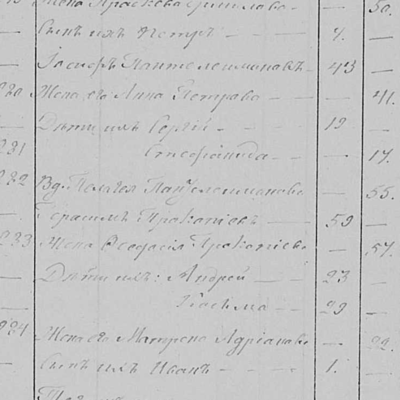 Жена Праскева 50.
Сынъ ихъ Петръ 4.
Іосифъ Пантелеимоновъ 43
280 Жена его Анна Петрова 41.
Дѣти ихъ Сергій 19
281 Стефанида 17.
282 Вд. Пелагея Пантелеимонова 55.
Герасимъ Прокопіевъ 59
283 Жена Феодосія Прокопіева 57.
Дѣти ихъ: Андрей 23
Косьма 29
284 Жена его Матрона Адріанова 22.
Сынъ ихъ Иванъ 1.